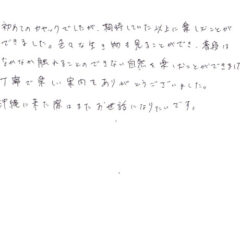 初めてのカヤックでしたが、期待していた以上に楽しむことが
できました。色々な生き物を見ることができ、普段は
なかなか触れることのできない自然を楽しむことができまし
丁寧で楽しい案内をありがとうございました。
沖縄に来た際はまたお世話になりたいです。